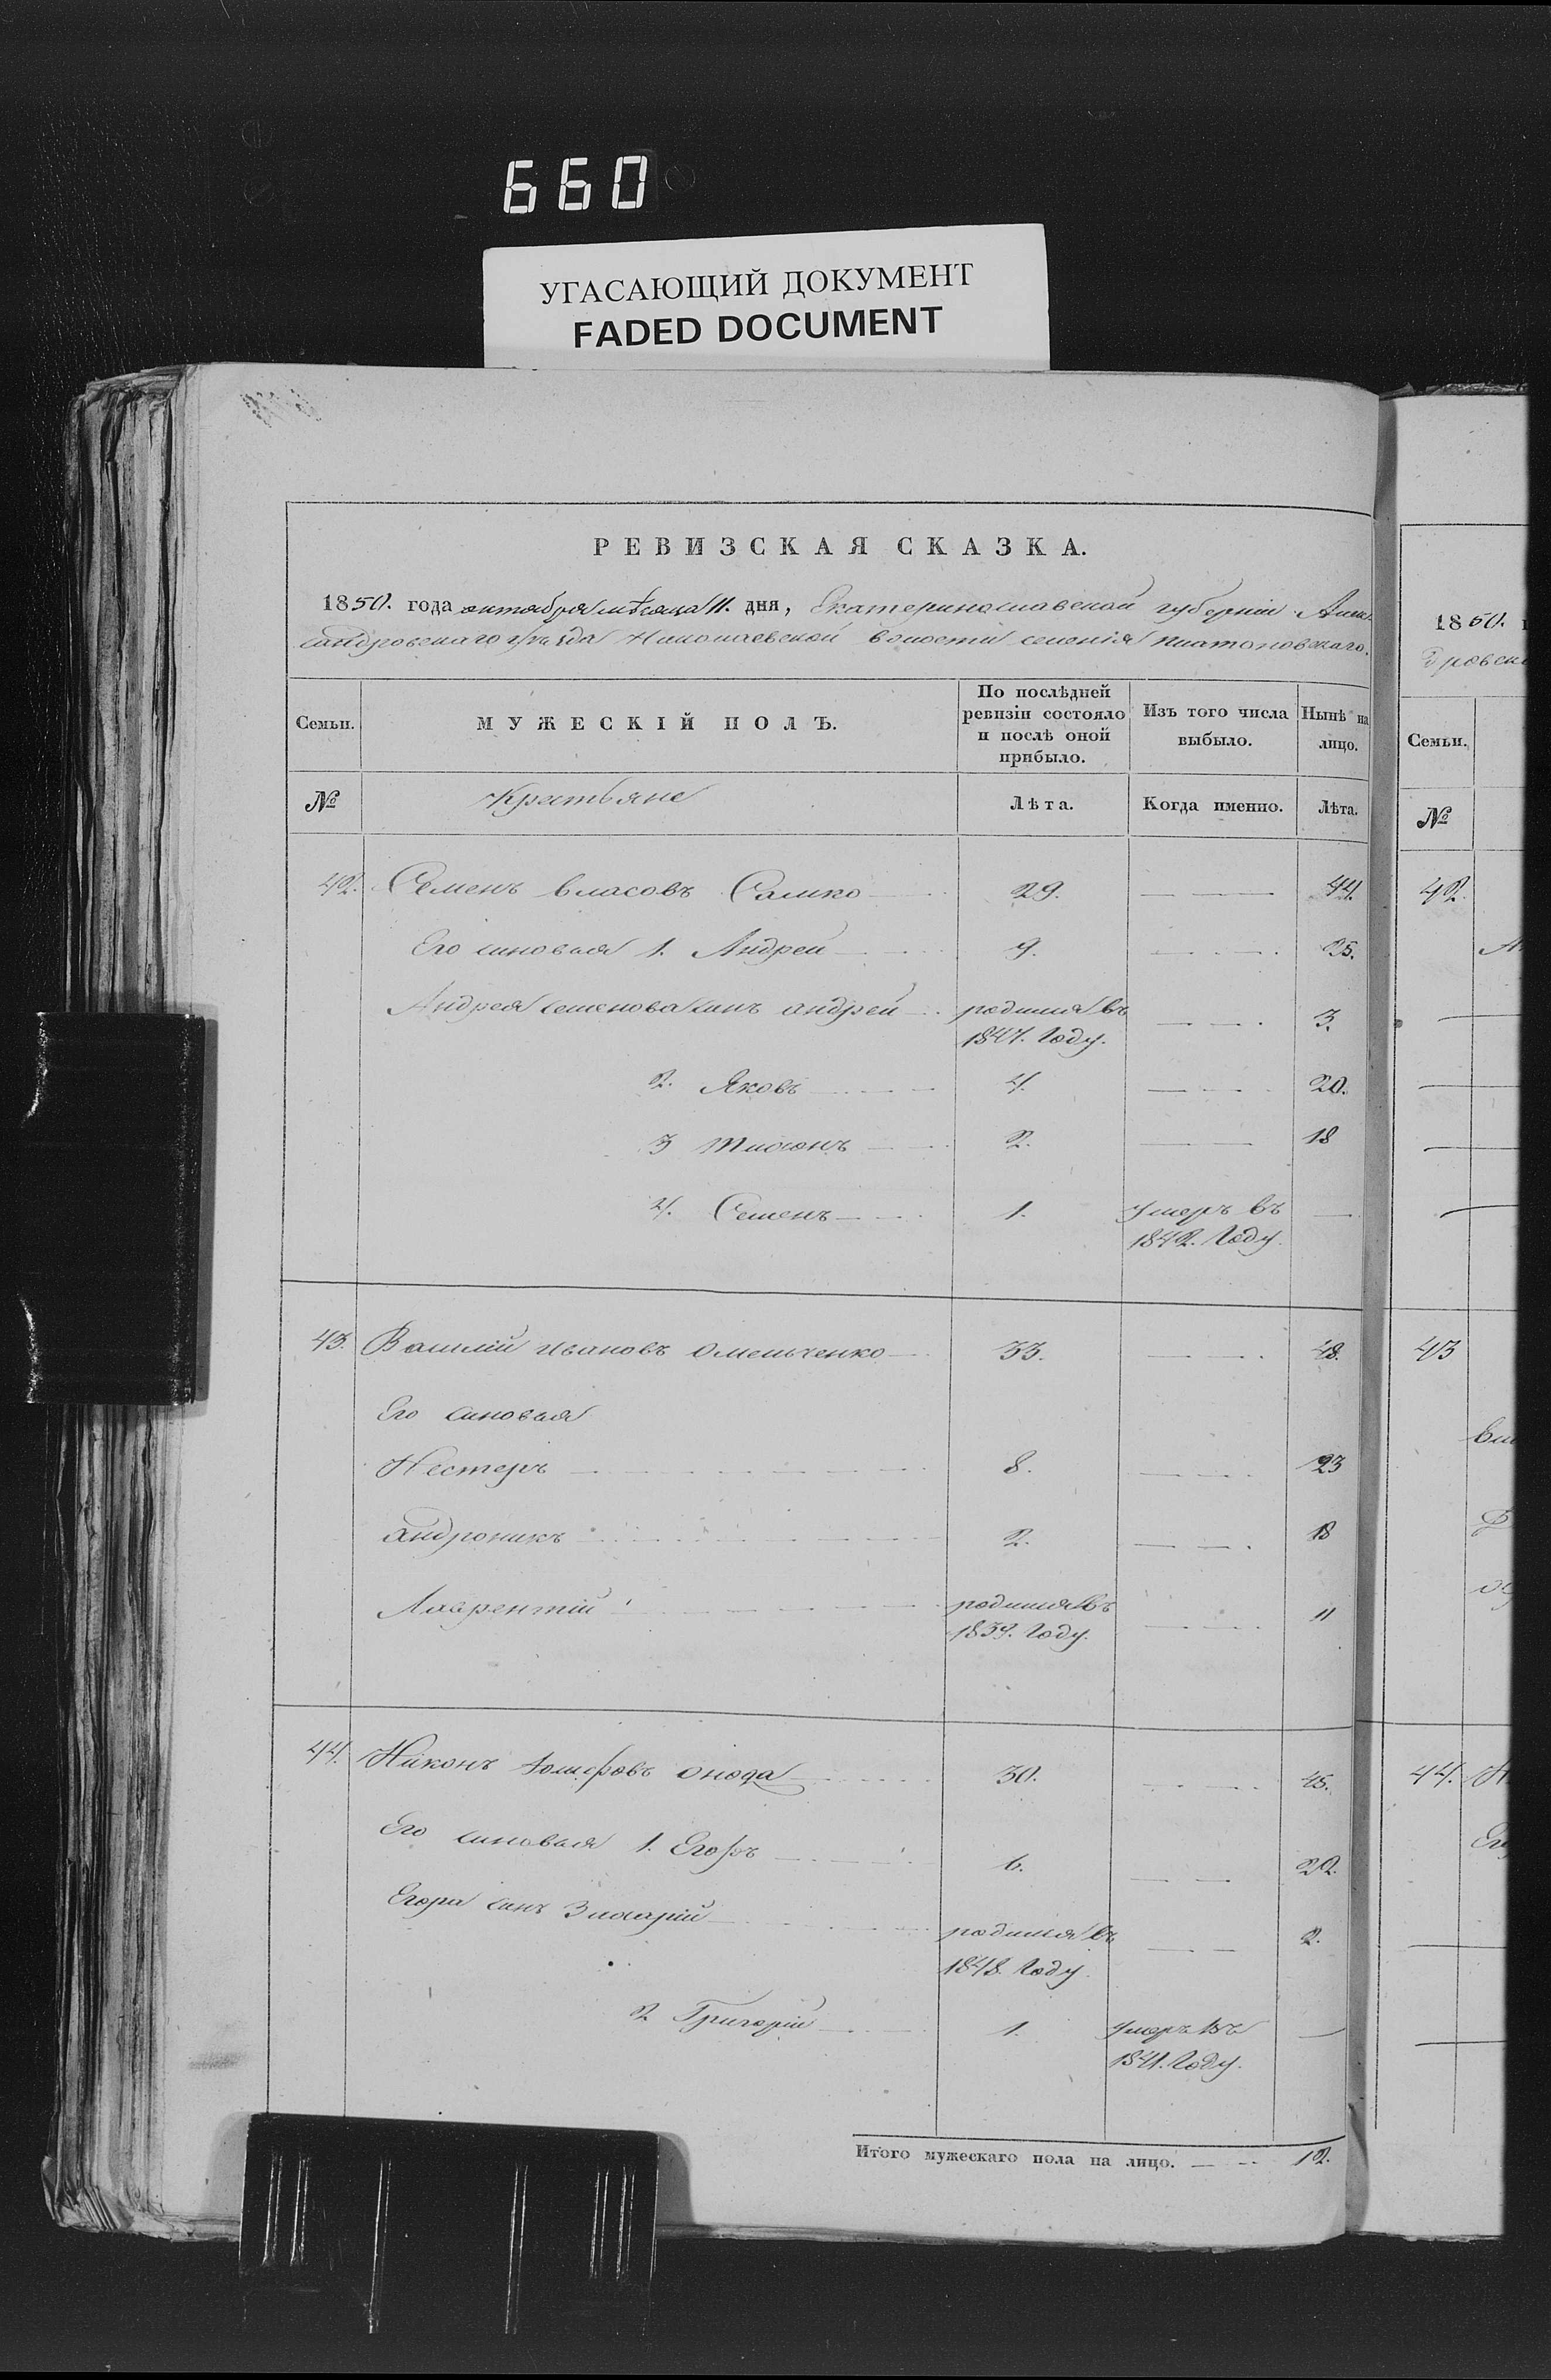 660
УГАСАЮЩИЙ ДОКУМЕНТ
FADED DOCUMENT
РЕВИЗСКАЯ СКАЗКА.
1850. года октября мѣсяца 11. дня, Екатеринославской губерніи Алек-
сандровскаго уѣзда Николаевской волости селенія Платоновскаго.
Семьи. МУЖЕСКІЙ ПОЛЪ. По послѣдней ревизіи состояло и послѣ оной прибыло. Изъ того числа выбыло. Нынѣ на лицо.
№ Крестьяне Лѣта. Когда именно. Лѣта.
42. Семенъ власовъ Сомко 29. 44.
Его сыновья 1. Андрей 9. 25.
Андрея семенова сынъ андрей родился въ 3.
1847. Году.
2. Яковъ 4. 20.
3 Тихонъ 2. 18
4. Семенъ 1. умеръ въ
1842. Году.
43. Василий ивановъ омельченко 33. 48.
Его сыновья
Нестеръ 8. 23
андроникъ 2. 18
Лаврентій родился въ 11
1839. Году.
44. Никонъ 30. 45.
Его сыновья 1. Егоръ 6. 22.
Егора сынъ родился въ 2.
1848. Году.
2 Григорій 1. умеръ въ
1841. Году.
Итого мужескаго пола на лицо. 12.
1850.
Семьи.
№
42.
43
44.